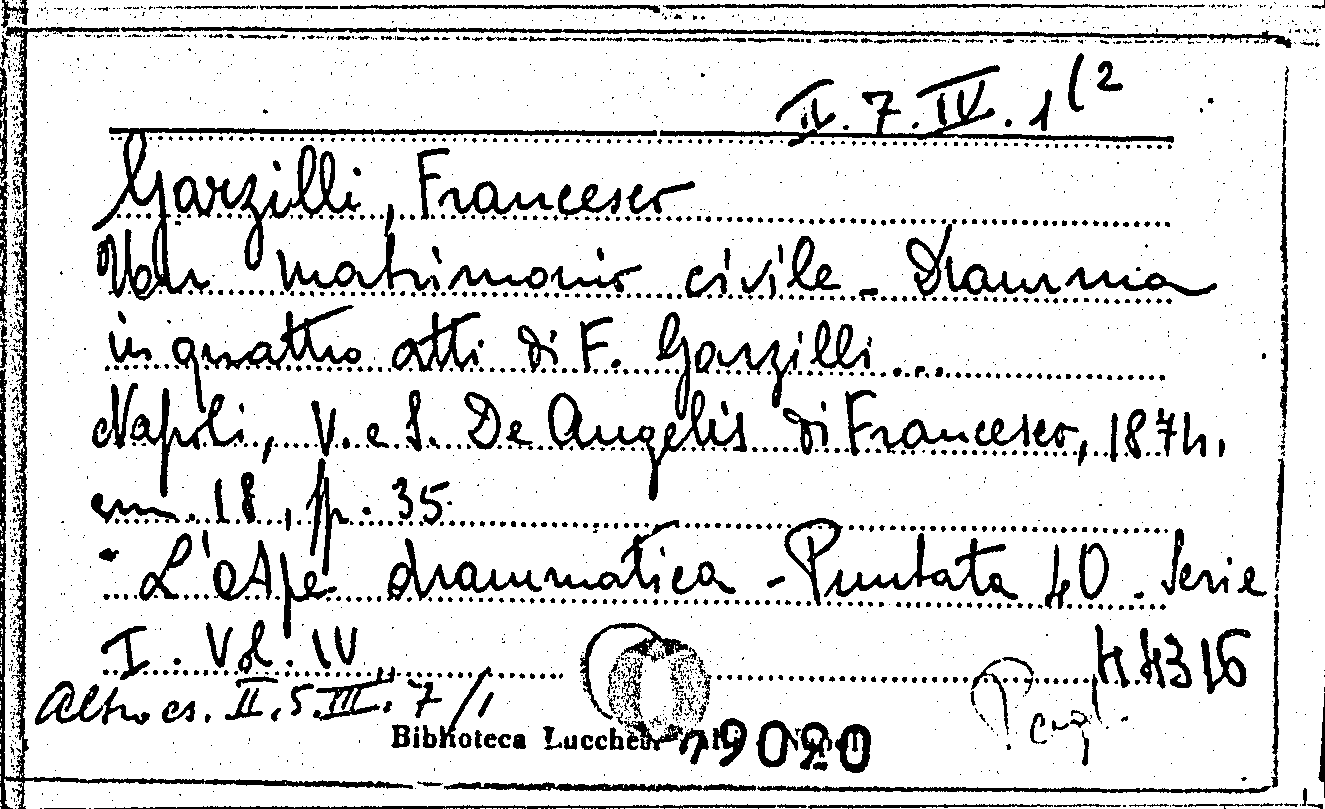 II. 7. IV. 1(2
Garzilli, Francesco
Un matrimonio civile - Dramma
in quattro atti di F. Garzilli ...
Napoli, V. e S. De Angelis di Francesco, 1874.
cm. 18, pp. 35
"L'Ape drammatica - Puntata 40. Serie
I. Vol. IV"
44316
Altro es. II. 5. III. 7/1
Biblioteca Lucchesi
19020